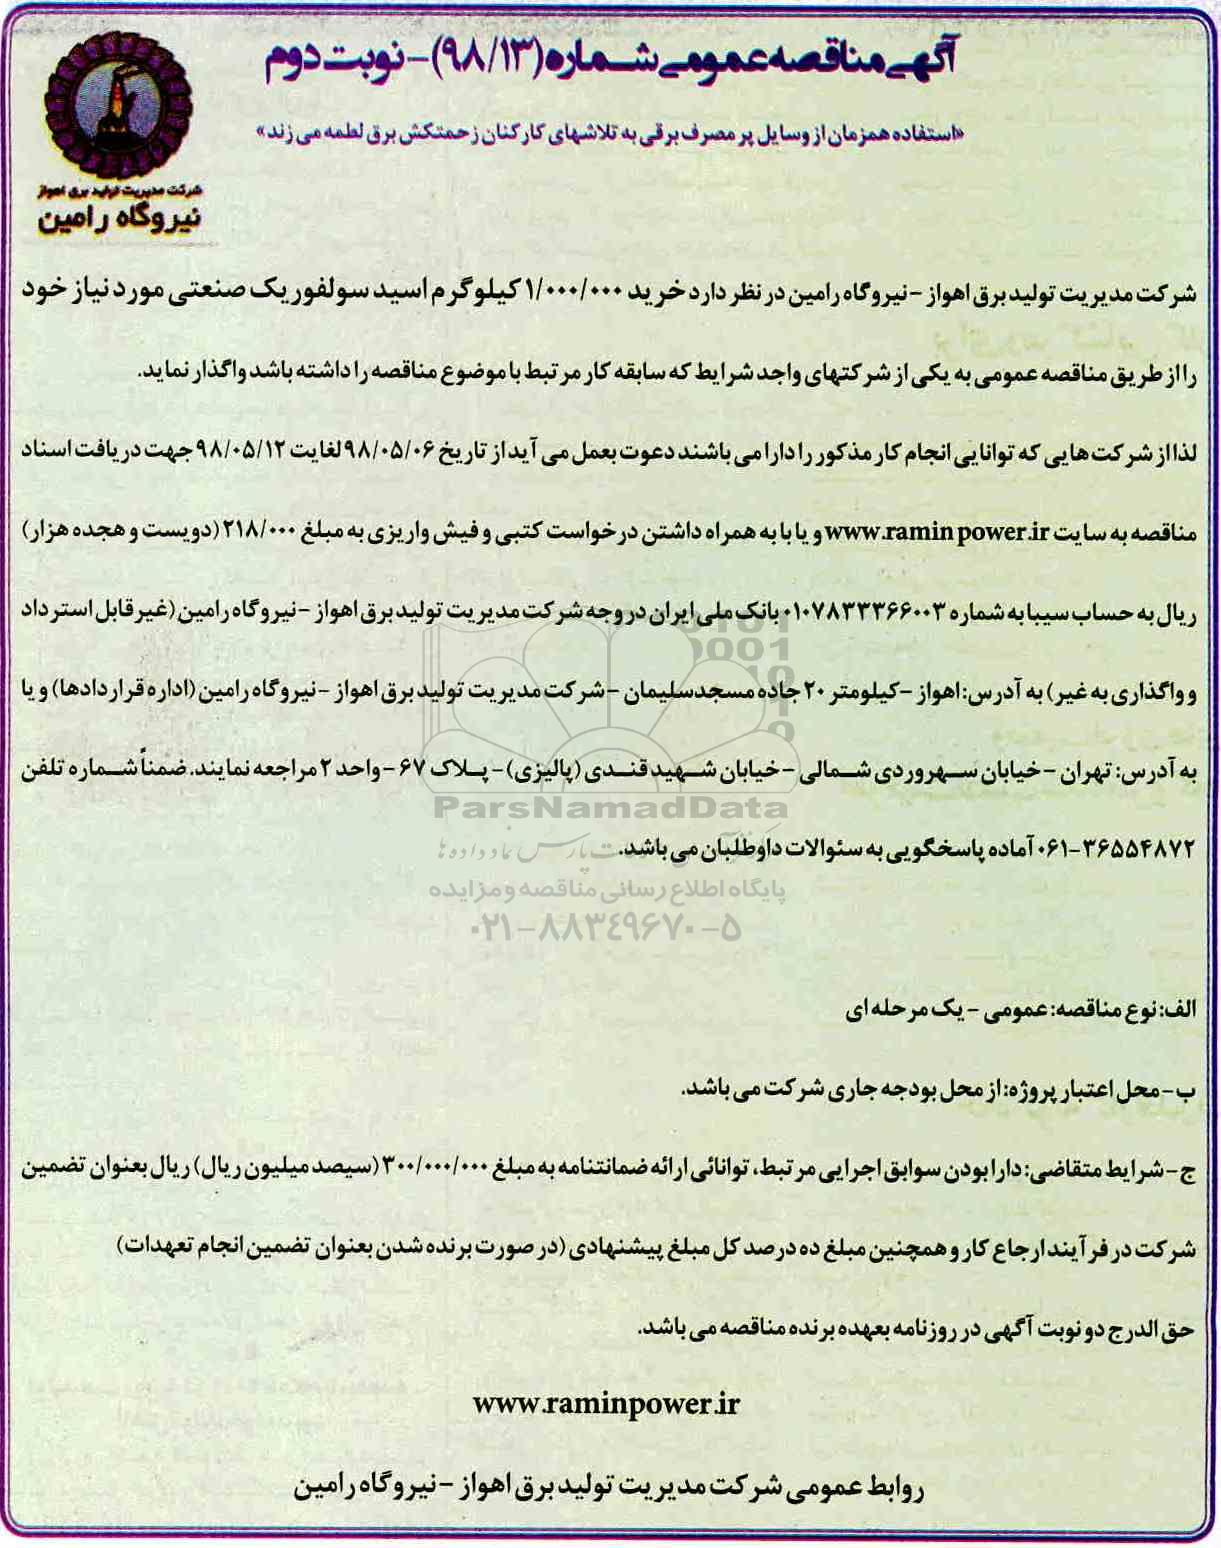 آگهی مناقصه عمومی شماره (۹۸/۱۳) - نوبت دوم
«استفاده همزمان از وسایل پر مصرف برقی به تلاشهای کارکنان زحمتکش برق لطمه می زند»
شرکت مدیریت تولید برق اهواز
نیروگاه رامین
شرکت مدیریت تولید برق اهواز - نیروگاه رامین در نظر دارد خرید ۱/۰۰۰/۰۰۰ کیلوگرم اسید سولفوریک صنعتی مورد نیاز خود
را از طریق مناقصه عمومی به یکی از شرکتهای واجد شرایط که سابقه کار مرتبط با موضوع مناقصه را داشته باشد واگذار نماید.
لذا از شرکت هایی که توانایی انجام کار مذکور را دارا می باشند دعوت بعمل می آید از تاریخ ۹۸/۰۵/۰۶ لغایت ۹۸/۰۵/۱۲ جهت دریافت اسناد
مناقصه به سایت www.raminpower.ir و یا با به همراه داشتن درخواست کتبی و فیش واریزی به مبلغ ۲۱۸/۰۰۰ (دویست و هجده هزار)
ریال به حساب سیبا به شماره ۰۱۰۷۸۳۳۳۶۶۰۰۳ بانک ملی ایران در وجه شرکت مدیریت تولید برق اهواز - نیروگاه رامین (غیر قابل استرداد
و واگذاری به غیر) به آدرس: اهواز - کیلومتر ۲۰ جاده مسجدسلیمان - شرکت مدیریت تولید برق اهواز - نیروگاه رامین (اداره قراردادها) و یا
به آدرس: تهران - خیابان سهروردی شمالی - خیابان شهید قندی (پالیزی) - پلاک ۶۷ - واحد ۲ مراجعه نمایند. ضمناً شماره تلفن
۰۶۱-۳۶۵۵۴۸۷۲ آماده پاسخگویی به سئوالات داوطلبان می باشد.
ParsNamadData
پایگاه اطلاع رسانی مناقصه و مزایده
۰۲۱-۸۸۳۴۹۶۷۰-۵
الف: نوع مناقصه: عمومی - یک مرحله ای
ب- محل اعتبار پروژه: از محل بودجه جاری شرکت می باشد.
ج- شرایط متقاضی: دارا بودن سوابق اجرایی مرتبط، توانائی ارائه ضمانتنامه به مبلغ ۳۰۰/۰۰۰/۰۰۰ (سیصد میلیون ریال) ریال بعنوان تضمین
شرکت در فرآیند ارجاع کار و همچنین مبلغ ده درصد کل مبلغ پیشنهادی (در صورت برنده شدن بعنوان تضمین انجام تعهدات)
حق الدرج دو نوبت آگهی در روزنامه بعهده برنده مناقصه می باشد.
www.raminpower.ir
روابط عمومی شرکت مدیریت تولید برق اهواز - نیروگاه رامین